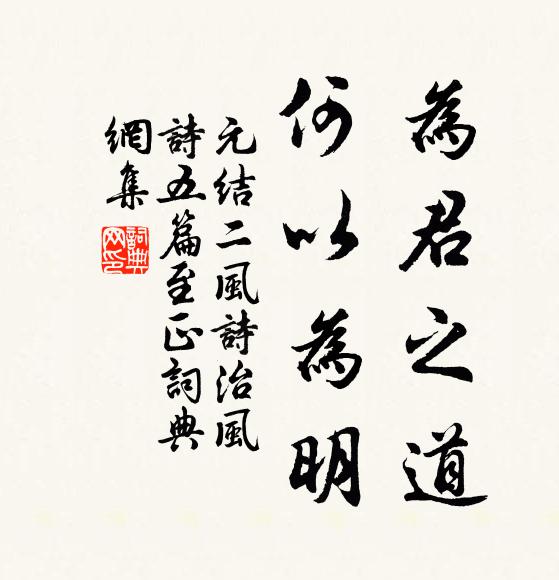 為君之道
何以為明
元結二風詩治風
詩五篇至正詞典
網集
詞典
网印